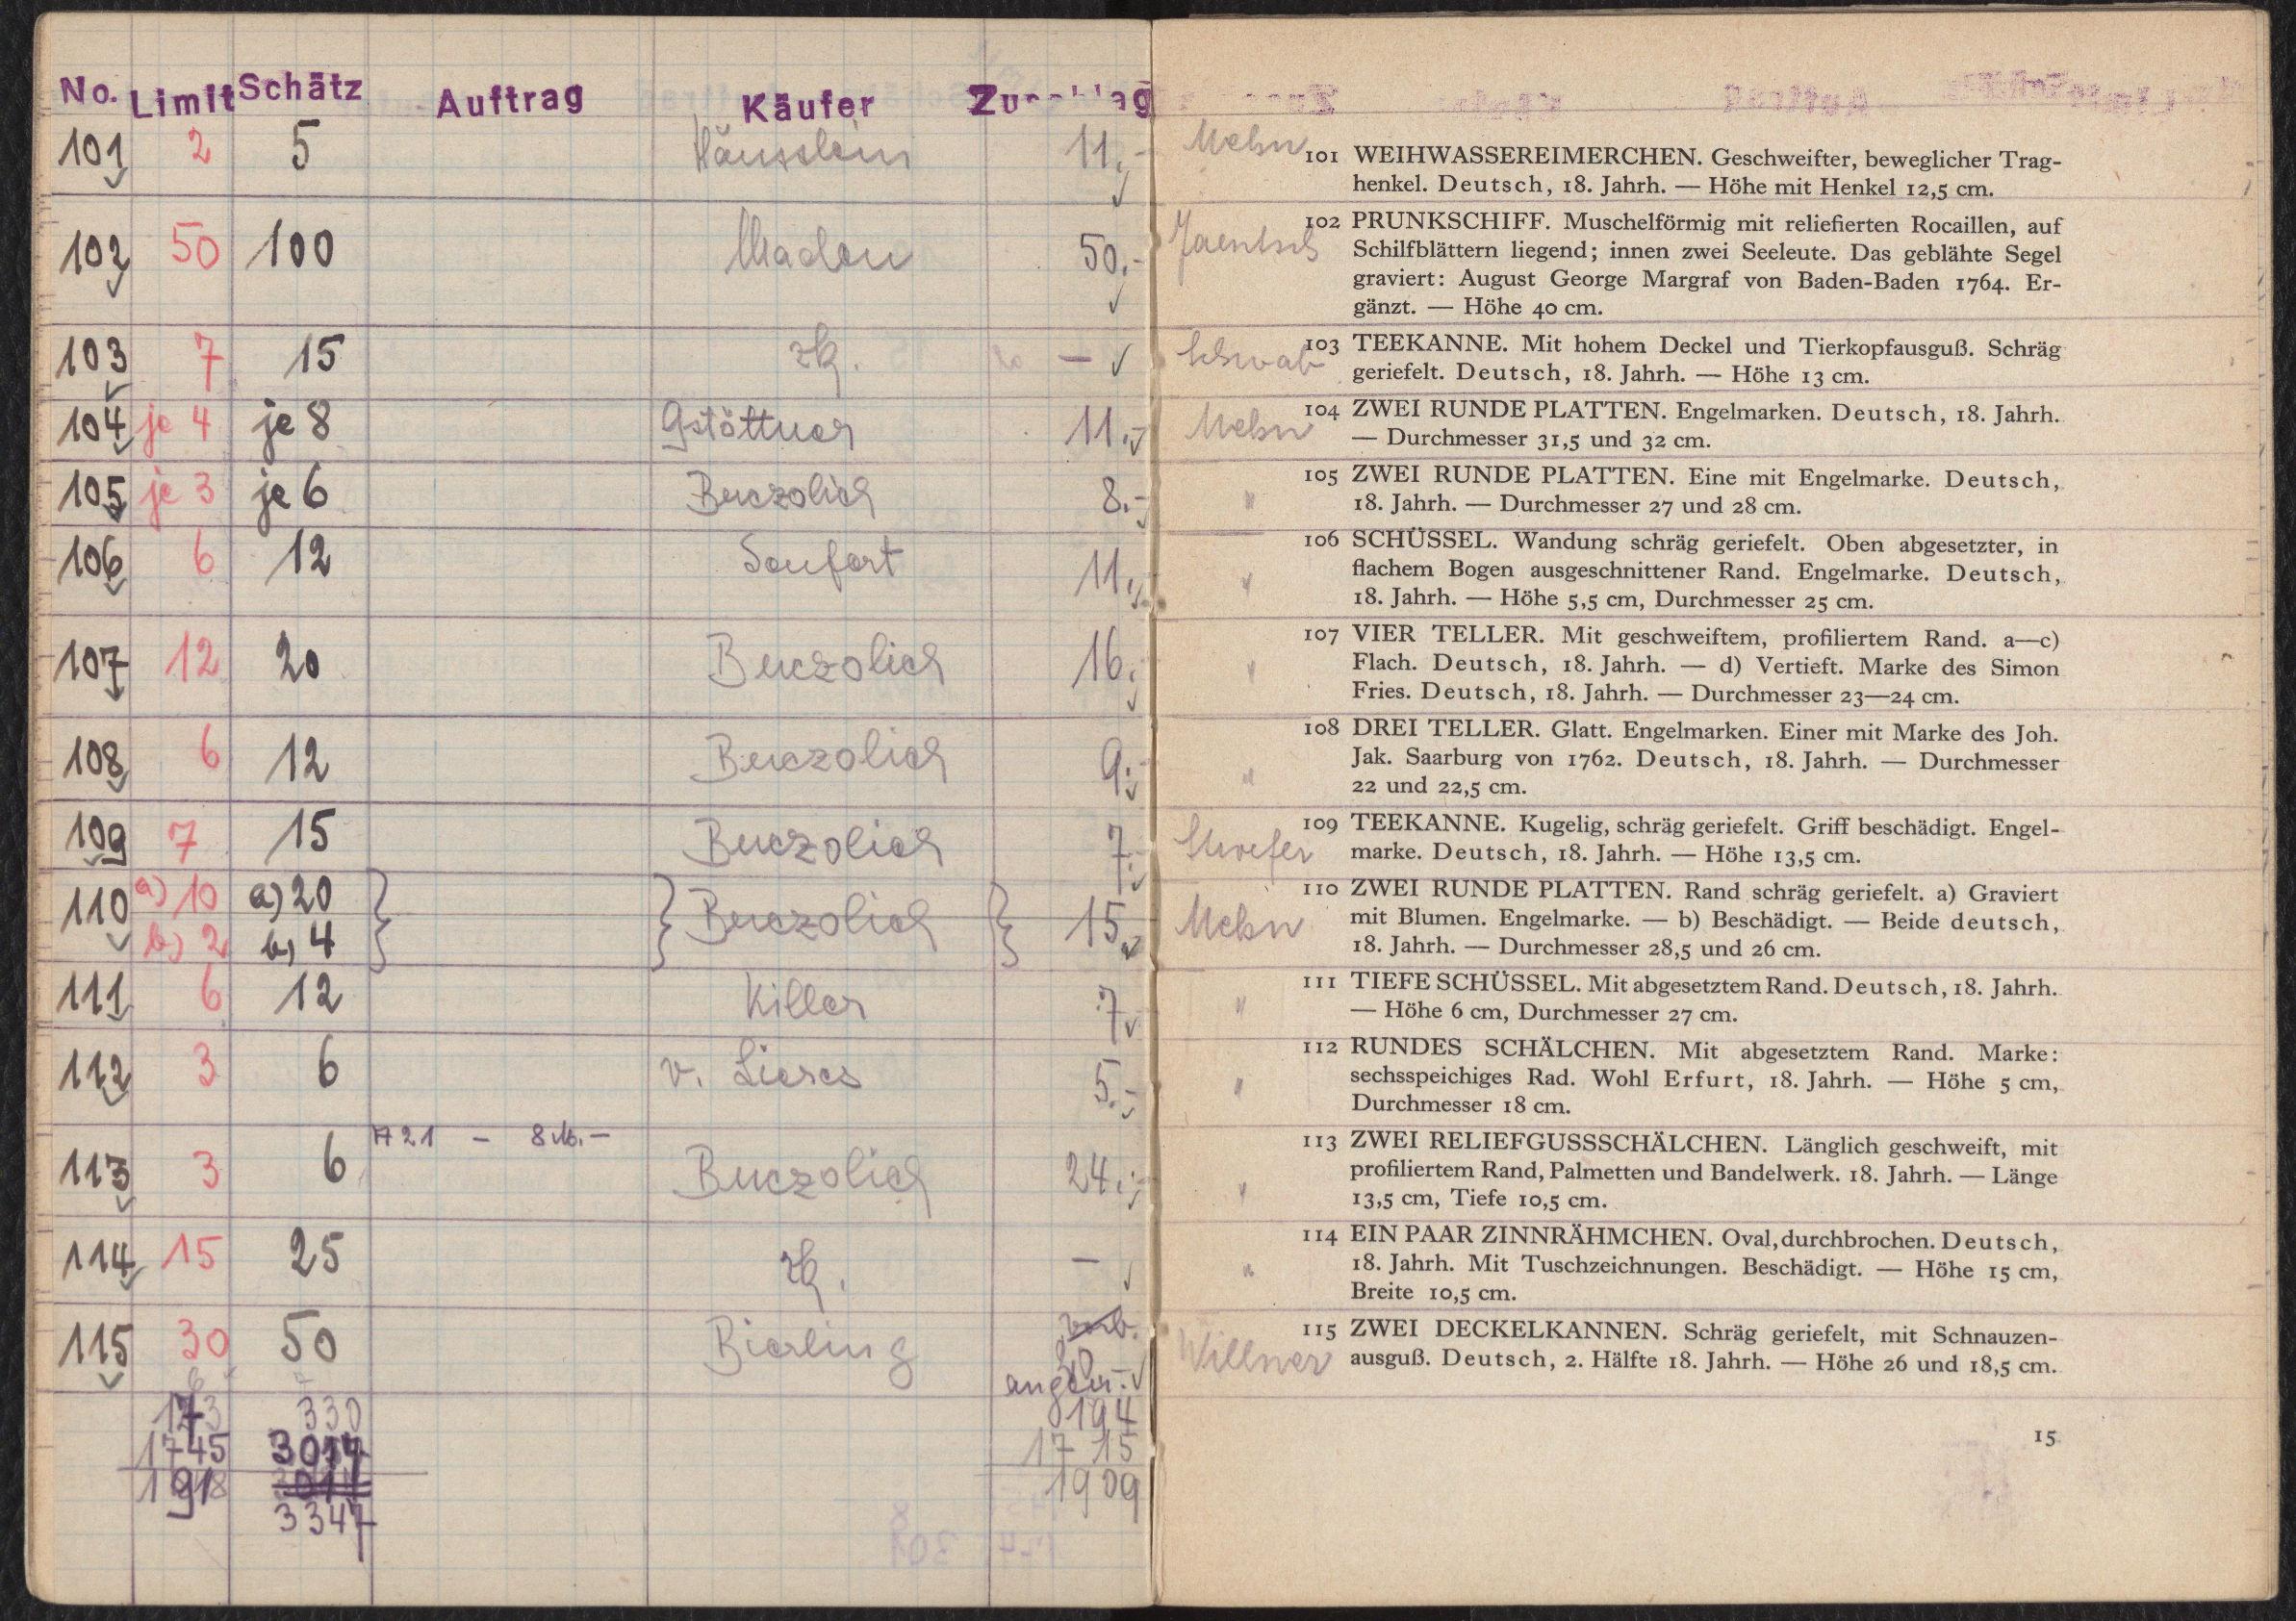 No. Limit Schätz Auftrag Käufer Zuschlag
101 2 5 Häusslein 11.-
102 50 100 50.-
103 7 15 zk. -
104 je 4 je 8 Gstöttner 11.-
105 je 3 je 6 Buczolich 8.-
106 6 12 Senfert 11.-
107 12 20 Buczolich 16.-
108 6 12 Buczolich 9.-
109 7 15 Buczolich 7.-
110 a) 10 a) 20 Buczolich 15.-
b) 2 b) 4
111 6 12 Killer 7.-
112 3 6 v. Lieres 5.-
113 3 6 A 21 - 8 M.- Buczolich 24.-
114 15 25 zk. -
115 30 50 Bierling 30
330 194
1745 1715
1909
3347
Mehn
101 WEIHWASSEREIMERCHEN. Geschweifter, beweglicher Trag-
henkel. Deutsch, 18. Jahrh. — Höhe mit Henkel 12,5 cm.
Jaentsch
102 PRUNKSCHIFF. Muschelförmig mit reliefierten Rocaillen, auf
Schilfblättern liegend; innen zwei Seeleute. Das geblähte Segel
graviert: August George Margraf von Baden-Baden 1764. Er-
gänzt. — Höhe 40 cm.
Schwab
103 TEEKANNE. Mit hohem Deckel und Tierkopfausguß. Schräg
geriefelt. Deutsch, 18. Jahrh. — Höhe 13 cm.
Mehn
104 ZWEI RUNDE PLATTEN. Engelmarken. Deutsch, 18. Jahrh.
— Durchmesser 31,5 und 32 cm.
105 ZWEI RUNDE PLATTEN. Eine mit Engelmarke. Deutsch,
" 18. Jahrh. — Durchmesser 27 und 28 cm.
106 SCHÜSSEL. Wandung schräg geriefelt. Oben abgesetzter, in
" flachem Bogen ausgeschnittener Rand. Engelmarke. Deutsch,
18. Jahrh. — Höhe 5,5 cm, Durchmesser 25 cm.
107 VIER TELLER. Mit geschweiftem, profiliertem Rand. a—c)
" Flach. Deutsch, 18. Jahrh. — d) Vertieft. Marke des Simon
Fries. Deutsch, 18. Jahrh. — Durchmesser 23—24 cm.
108 DREI TELLER. Glatt. Engelmarken. Einer mit Marke des Joh.
" Jak. Saarburg von 1762. Deutsch, 18. Jahrh. — Durchmesser
22 und 22,5 cm.
109 TEEKANNE. Kugelig, schräg geriefelt. Griff beschädigt. Engel-
marke. Deutsch, 18. Jahrh. — Höhe 13,5 cm.
Mehn
110 ZWEI RUNDE PLATTEN. Rand schräg geriefelt. a) Graviert
mit Blumen. Engelmarke. — b) Beschädigt. — Beide deutsch,
18. Jahrh. — Durchmesser 28,5 und 26 cm.
111 TIEFE SCHÜSSEL. Mit abgesetztem Rand. Deutsch, 18. Jahrh.
" — Höhe 6 cm, Durchmesser 27 cm.
112 RUNDES SCHÄLCHEN. Mit abgesetztem Rand. Marke:
" sechsspeichiges Rad. Wohl Erfurt, 18. Jahrh. — Höhe 5 cm,
Durchmesser 18 cm.
113 ZWEI RELIEFGUSSSCHÄLCHEN. Länglich geschweift, mit
" profiliertem Rand, Palmetten und Bandelwerk. 18. Jahrh. — Länge
13,5 cm, Tiefe 10,5 cm.
114 EIN PAAR ZINNRÄHMCHEN. Oval, durchbrochen. Deutsch,
" 18. Jahrh. Mit Tuschzeichnungen. Beschädigt. — Höhe 15 cm,
Breite 10,5 cm.
Willner
115 ZWEI DECKELKANNEN. Schräg geriefelt, mit Schnauzen-
ausguß. Deutsch, 2. Hälfte 18. Jahrh. — Höhe 26 und 18,5 cm.
15